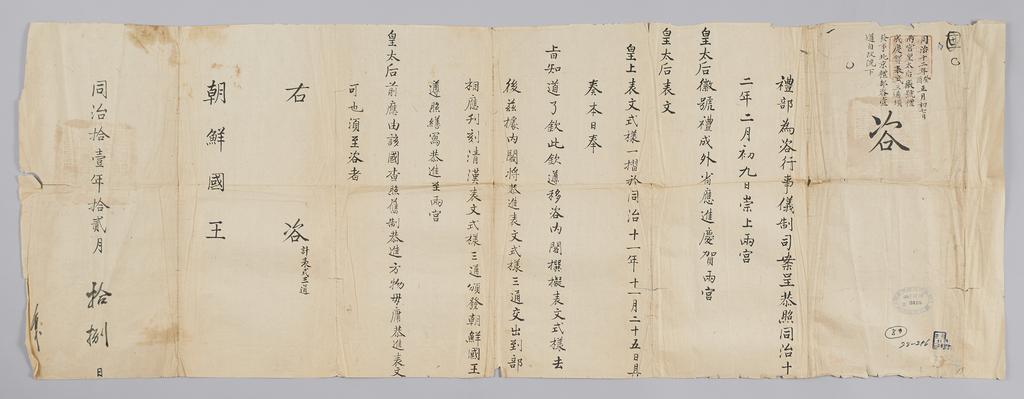 咨
同治十二年癸酉正月初七日
兩宮皇太后徽號禮
成慶賀表文三通順
付
禮部爲咨行事儀制司案呈恭照同治十
二年二月初九日崇上兩宮
皇太后徽號禮成外省應進慶賀兩宮
皇太后表文
皇上表文式樣一摺於同治十一年十一月二十五日具
奏本日奉
旨知道了欽此欽遵移咨內閣撰擬表文式樣去
後茲據內閣將恭進表文式樣三通交出到部
相應刊刻清漢表文式樣三通頒發朝鮮國王
遵照繕寫恭進至兩宮
皇太后前應由該國查照舊制恭進方物毋庸恭進表文
可也須至咨者
右 咨 計表式三通
朝鮮國王
同治拾壹年拾貳月 拾捌 日